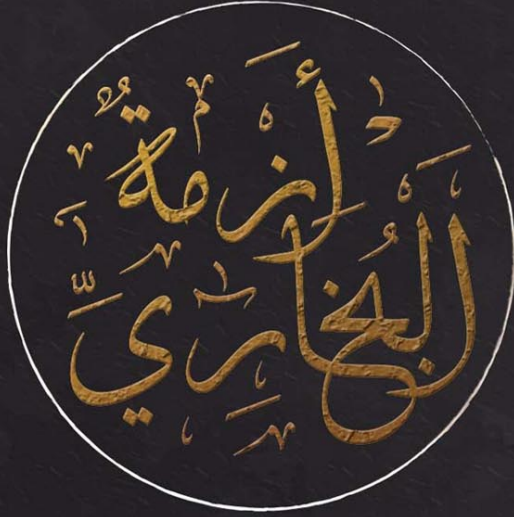 أزمةٌ
البُخاريِّ